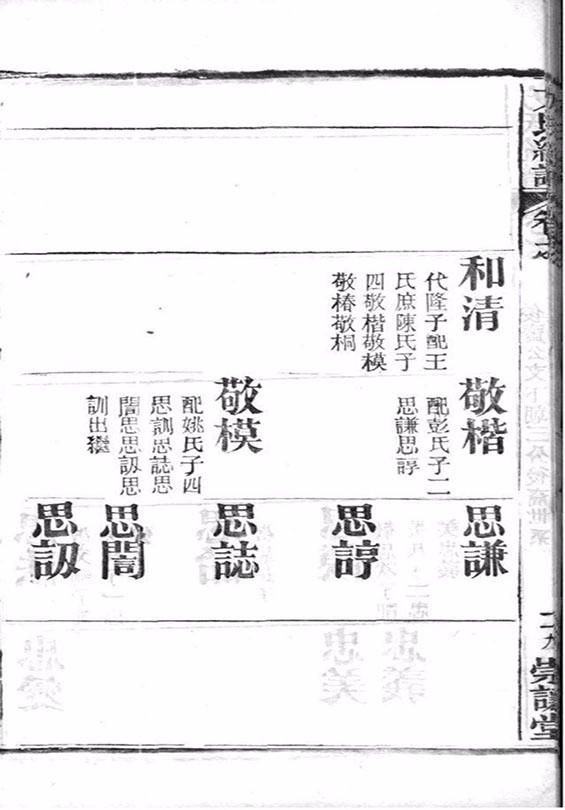 和清
代隆子配王
氏庶陳氏子
四敬楷敬模
敬椿敬桐
敬楷
配彭氏子二
思謙思諄
敬模
配姚氏子四
思訓思誌思
誾思思訒思
訓出繼
思謙
思諄
思誌
思誾
思訒
氏總譜
卷之
二九
崇讓堂